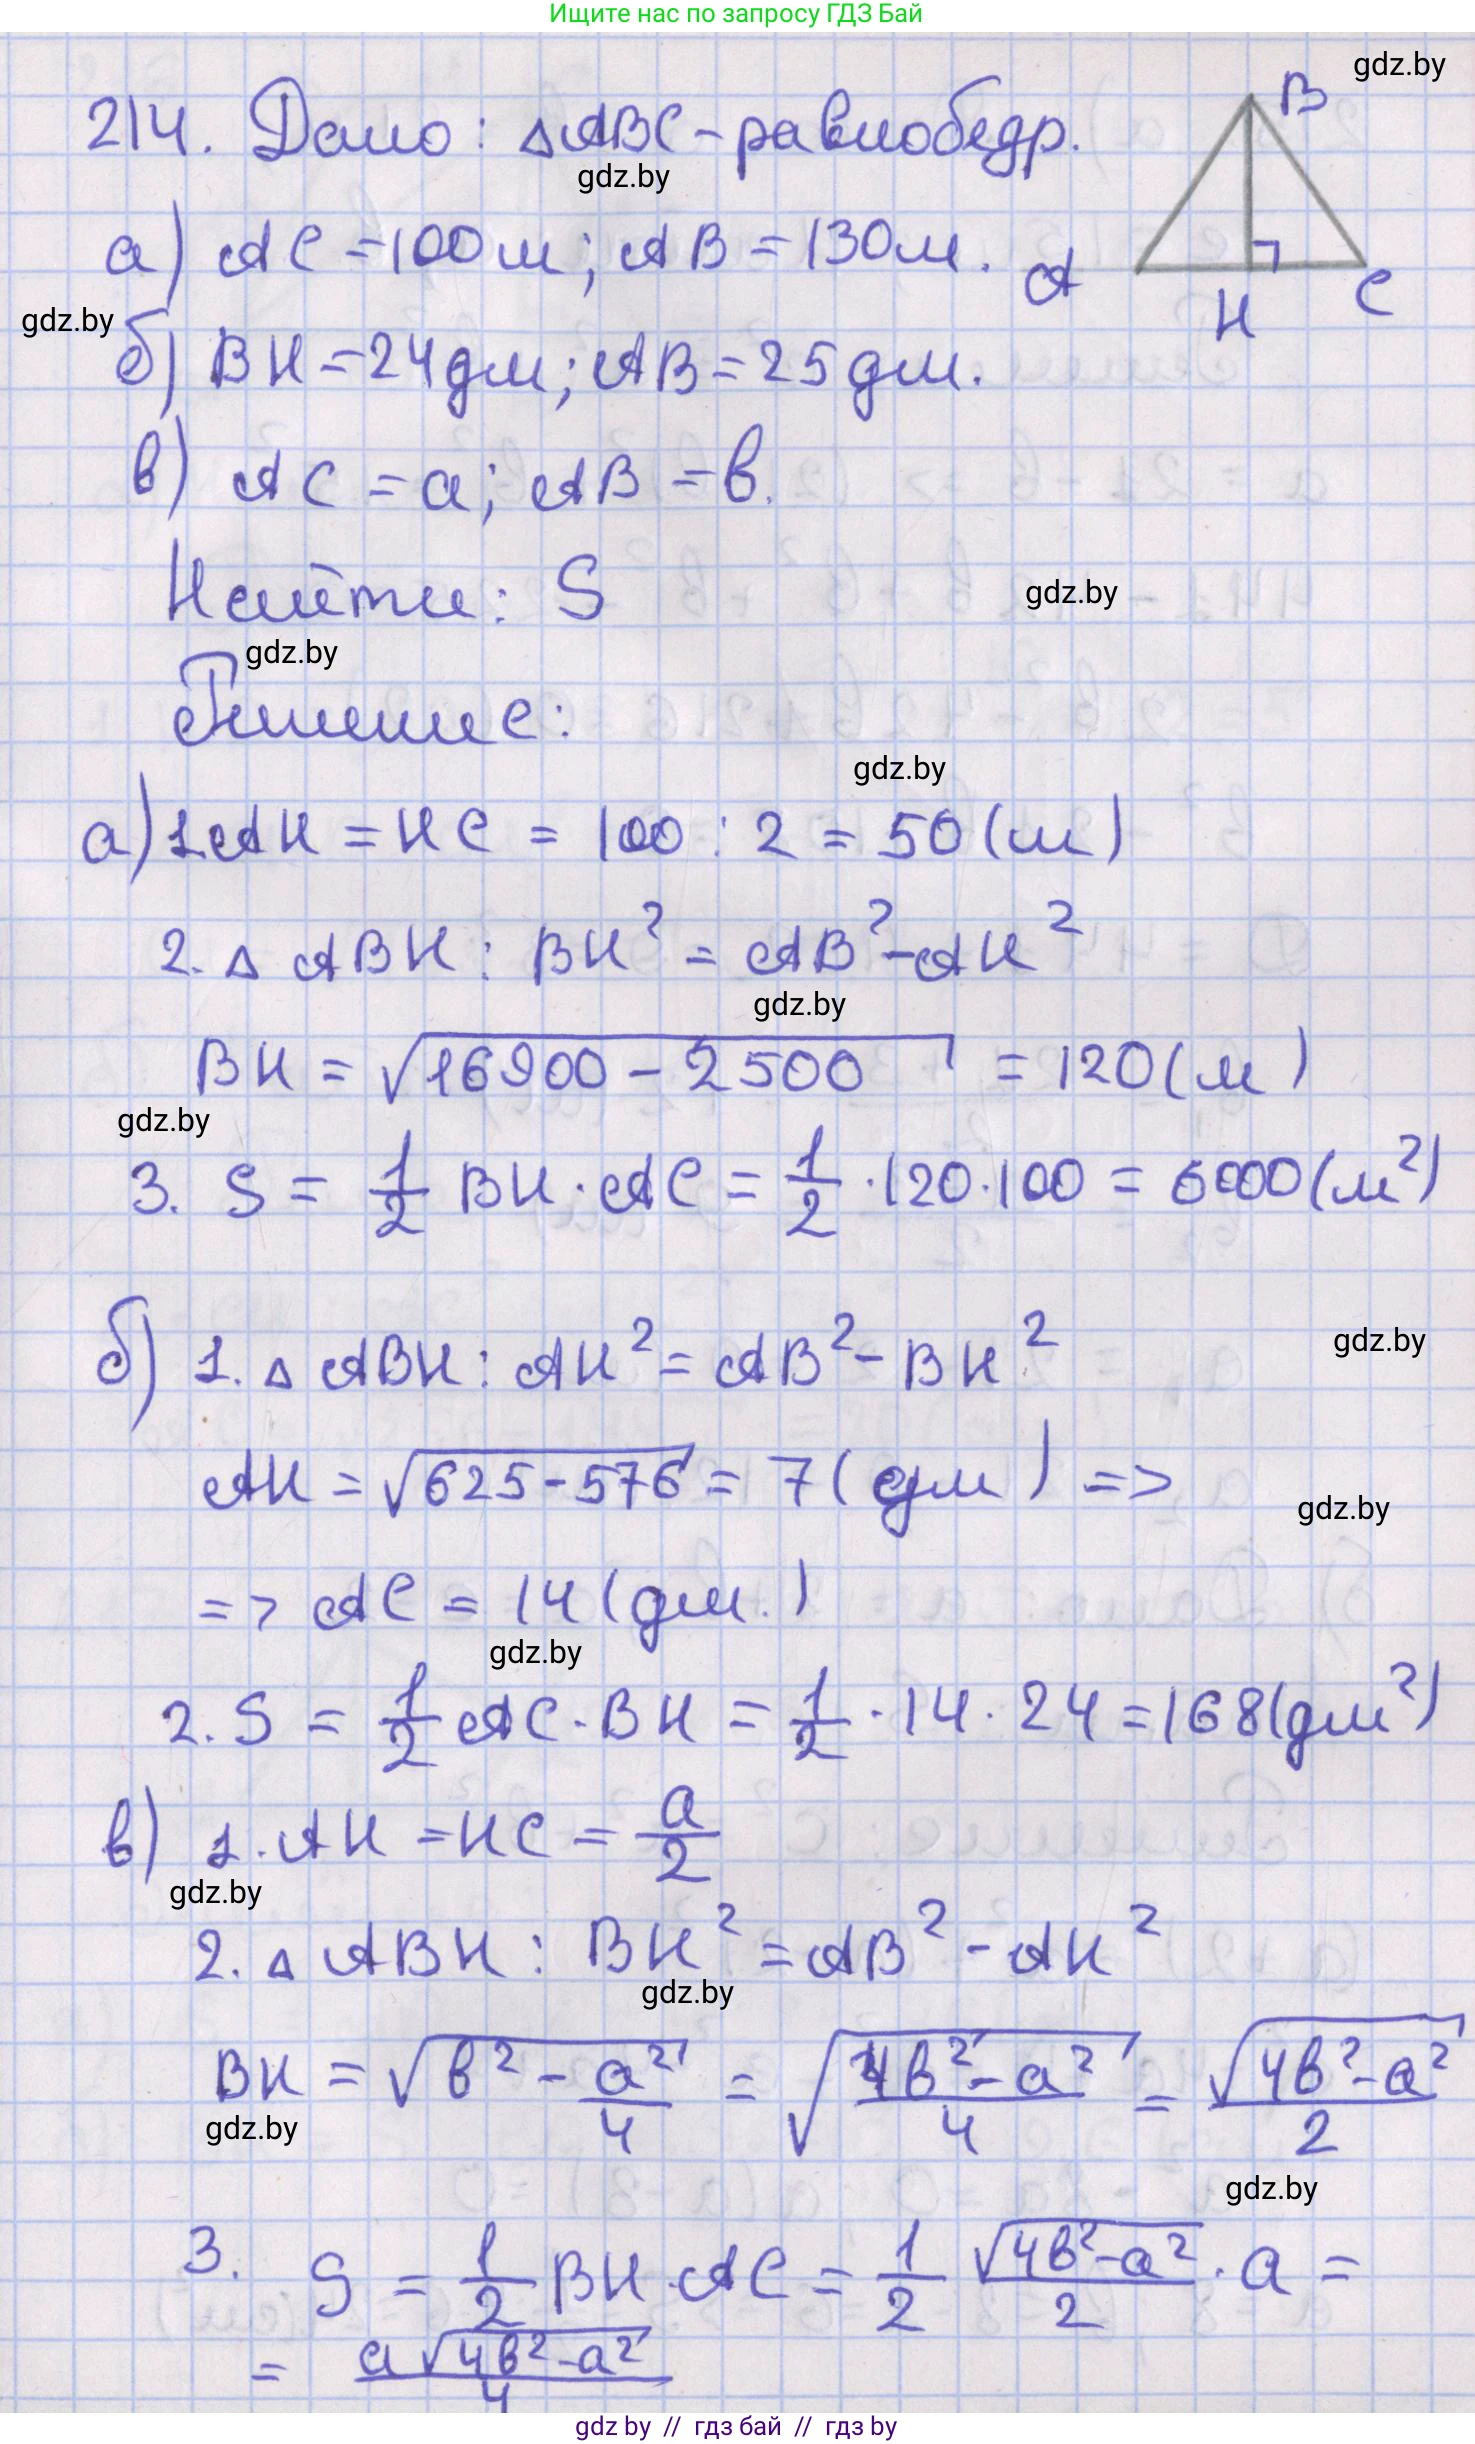 Ищите нас по запросу ГДЗ Бай
gdz.by
214. Дано: △ABC - равнобедр.
B
gdz.by
а) AC = 100 м; AB = 130 м.
A
H
C
gdz.by
б) BH = 24 дм; AB = 25 дм.
в) AC = a; AB = b.
Найти: S
gdz.by
gdz.by
Решение:
gdz.by
а) 1. AH = HC = 100 : 2 = 50 (м)
2. △ ABH : BH² = AB² - AH²
gdz.by
BH = √16900 - 2500 = 120 (м)
gdz.by
3. S = 1/2 BH · AC = 1/2 · 120 · 100 = 6000 (м²)
б) 1. △ ABH : AH² = AB² - BH²
gdz.by
AH = √625 - 576 = 7 (дм) =>
gdz.by
=> AC = 14 (дм.)
gdz.by
2. S = 1/2 AC · BH = 1/2 · 14 · 24 = 168 (дм²)
в) 1. AH = HC = a/2
gdz.by
2. △ ABH : BH² = AB² - AH²
gdz.by
BH = √b² - a²/4 = √4b² - a²/4 = √4b² - a²/2
gdz.by
gdz.by
3. S = 1/2 BH · AC = 1/2 √4b² - a²/2 · a =
= a√4b² - a²/4
gdz by // гдз бай // гдз by